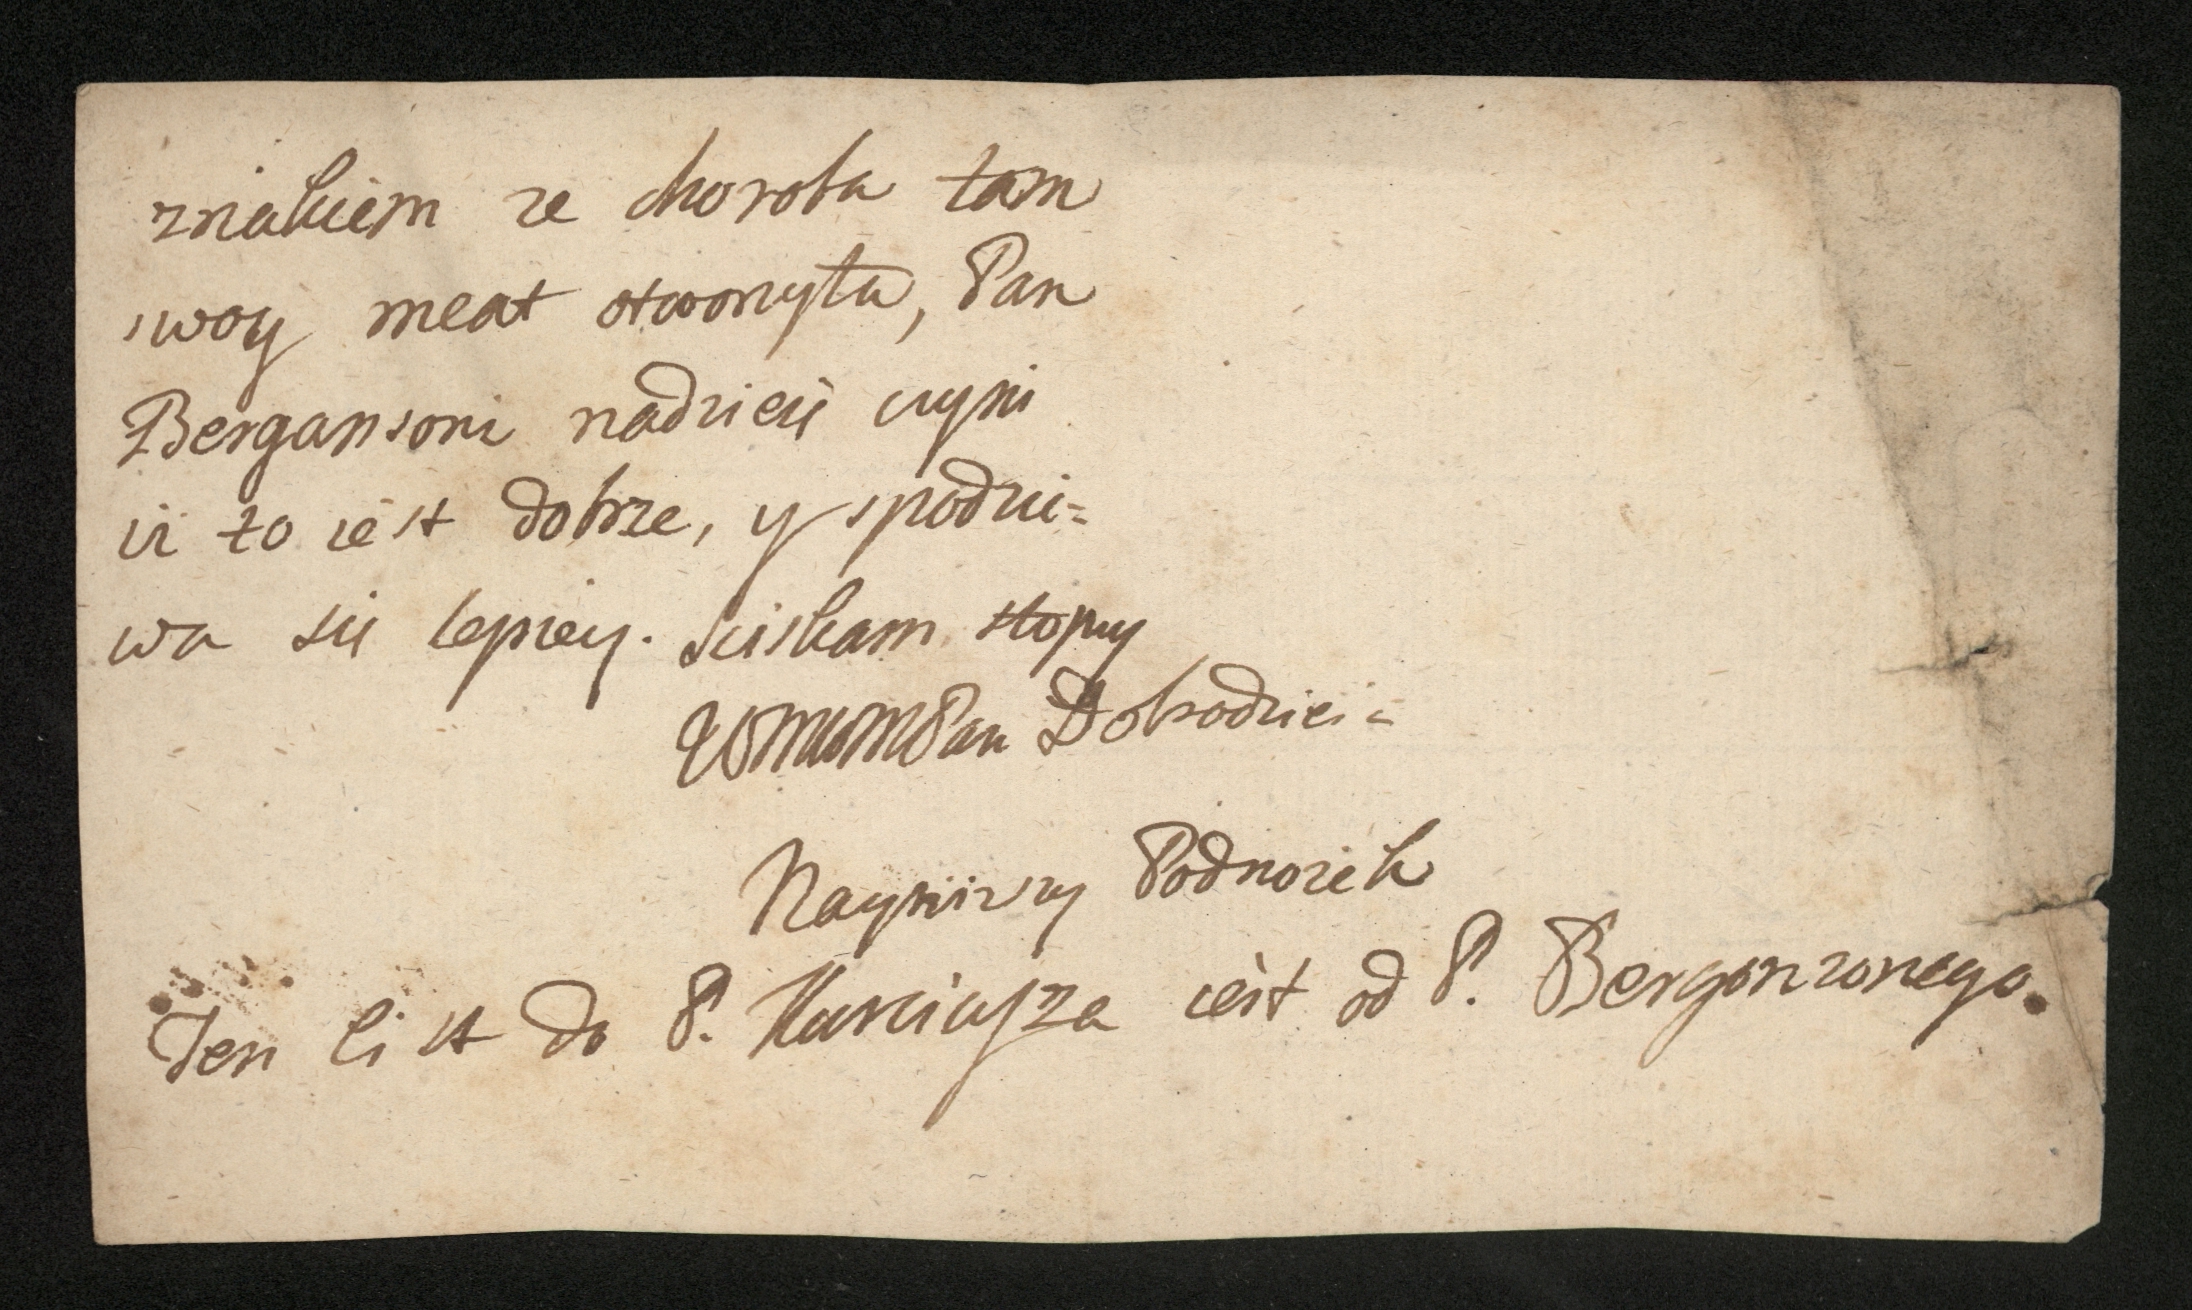 znakiem ze choroba tam
swoy meat otworzyła, Pan
Bergansoni nadzieię czyni
iż to iest dobrze, y spodzi=
wa się lepiey. Sciskam stopy
WMWMPan Dobrodziei=
Nayniższy Podnożek
Ten list do P. Kurciusza iest od P. Bergonzonego.